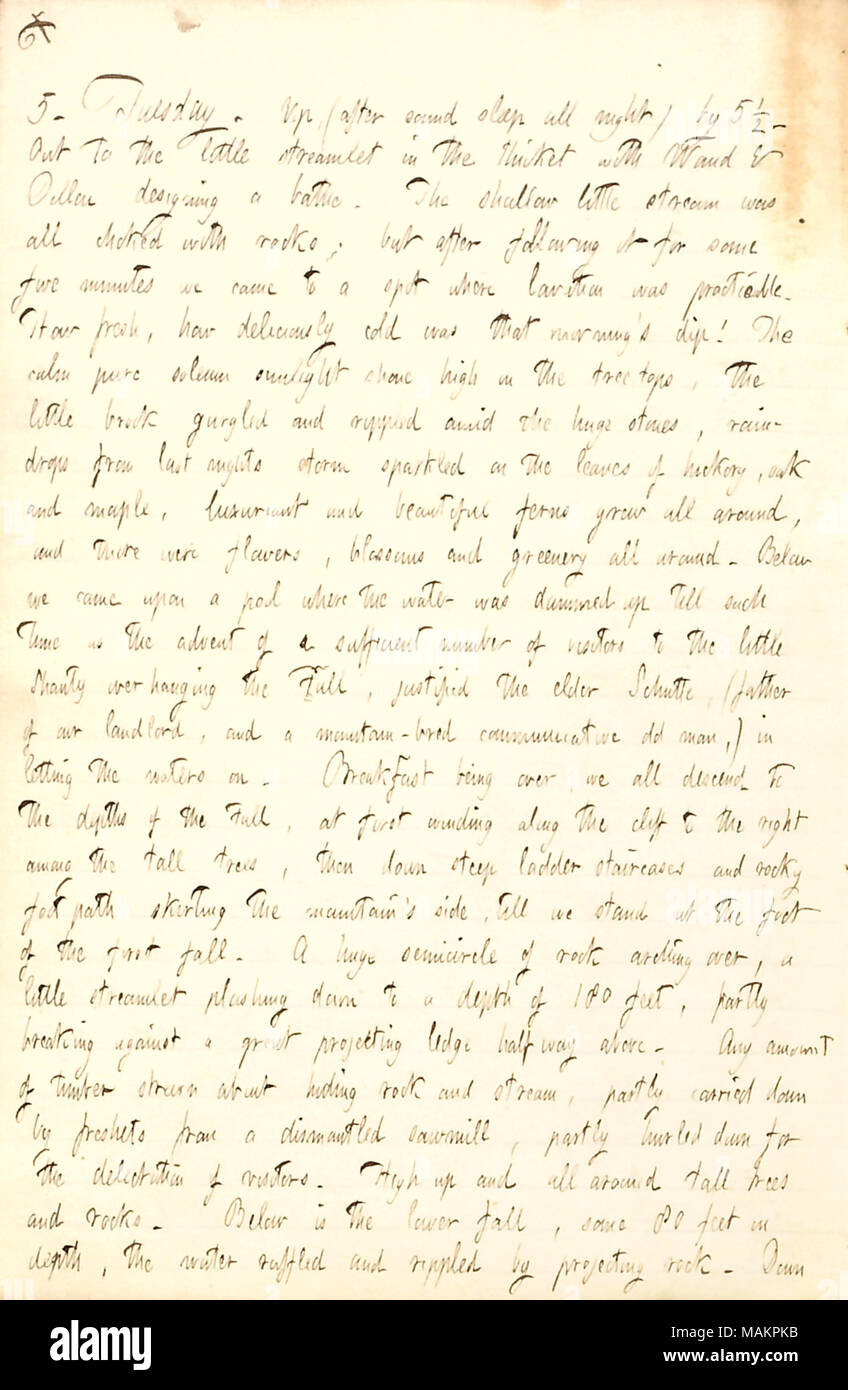 5_ Tuesday. Up, (after sound sleep all night) by 5 ½_
Out to the little streamlet in the thicket with Waud &
Dillon designing a bathe. The shallow little stream was
all choked with rocks; but after following it for some
five minutes we came to a spot where lavation was practicable.
How fresh, how deliciously cold was that morning's dip! The
calm pure solemn sunlight shone high on the tree tops, the
little brook gurgled and rippled amid the huge stones, rain-
drops from last nights storm sparkled on the leaves of hickory, oak
and maple, luxuriant and beautiful ferns grew all around,
and there were flowers, blossoms and greenery all around_ Below
we came upon a pool where the water was dammed up till such
time as the advent of a sufficient number of visitors to the little
shanty overhanging the Fall, justified the elder Schutte, (father
of our landlord, and a mountain-bred communicative old man,) in
letting the waters on_ Breakfast being over we all descend to
the depths of the Fall, at first winding along the cliff to the right
among the tall trees, then down steep ladder staircases and rocky
foot path skirting the mountain's side, till we stand at the foot
of the first fall_ A huge semicircle of rock arching over, a
little streamlet plashing down to a depth of 180 feet, partly
breaking against a great projecting ledge half way above_ Any amount
of timber strewn about hiding rock and stream, partly carried down
by freshets from a dismantled sawmill, partly hurled down for
the delectation of visitors. High up and all around tall trees
and rocks_ Below is the lower fall, some 80 feet in
depth, the water ruffled and rippled by projecting rock_ Down
alamy
Image ID: MAKPKB
www.alamy.com